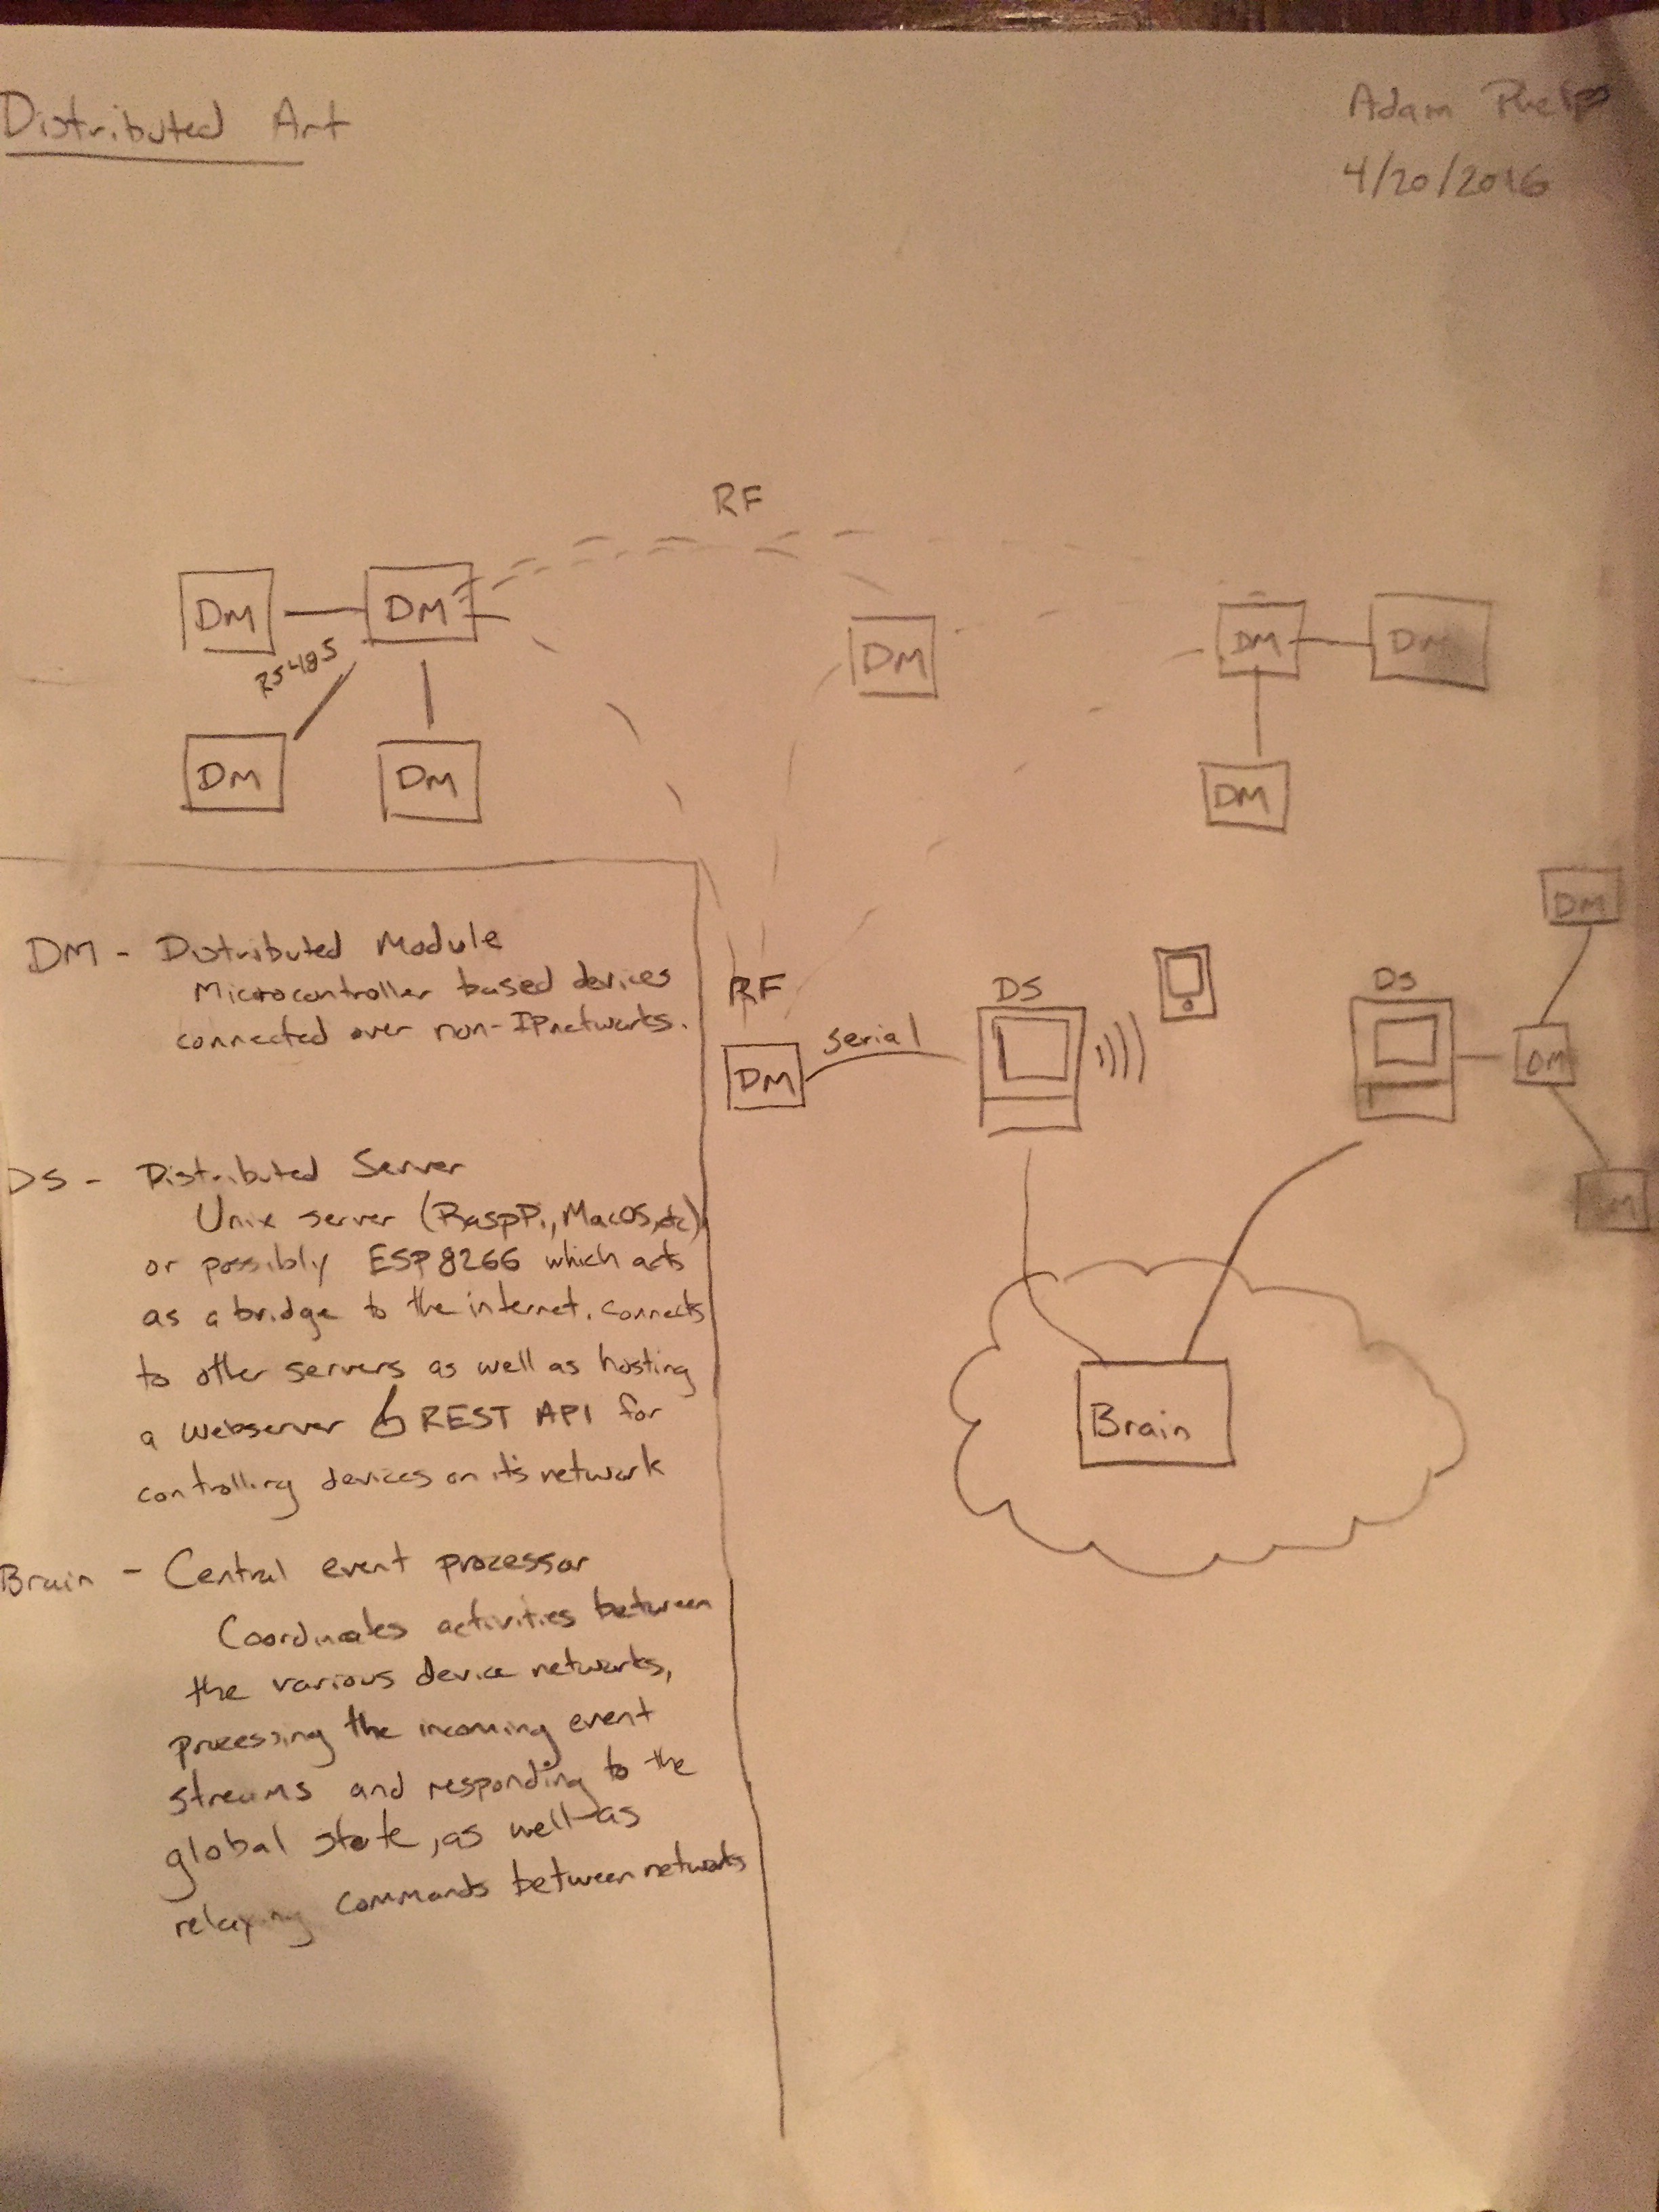 Distributed Art
Adam Phelps
4/20/2016
RF
DM
DM
DM
DM
DM
RS485
DM
DM
DM
DM
DM - Distributed Module
Microcontroller based devices
connected over non-IP networks.
RF
DM
serial
DS
DS
DM
DM
DM
DS - Distributed Server
Unix server (RaspPi, MacOS, etc)
or possibly ESP8266 which acts
as a bridge to the internet. Connects
to other servers as well as hosting
a webserver & REST API for
controlling devices on it's network
Brain
Brain - Central event processor
Coordinates activities between
the various device networks,
processing the incoming event
streams and responding to the
global state, as well as
relaying commands between networks